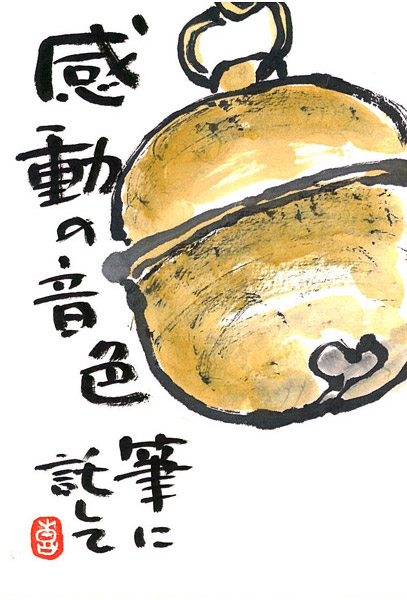 感動の音色
筆に
託して
喜